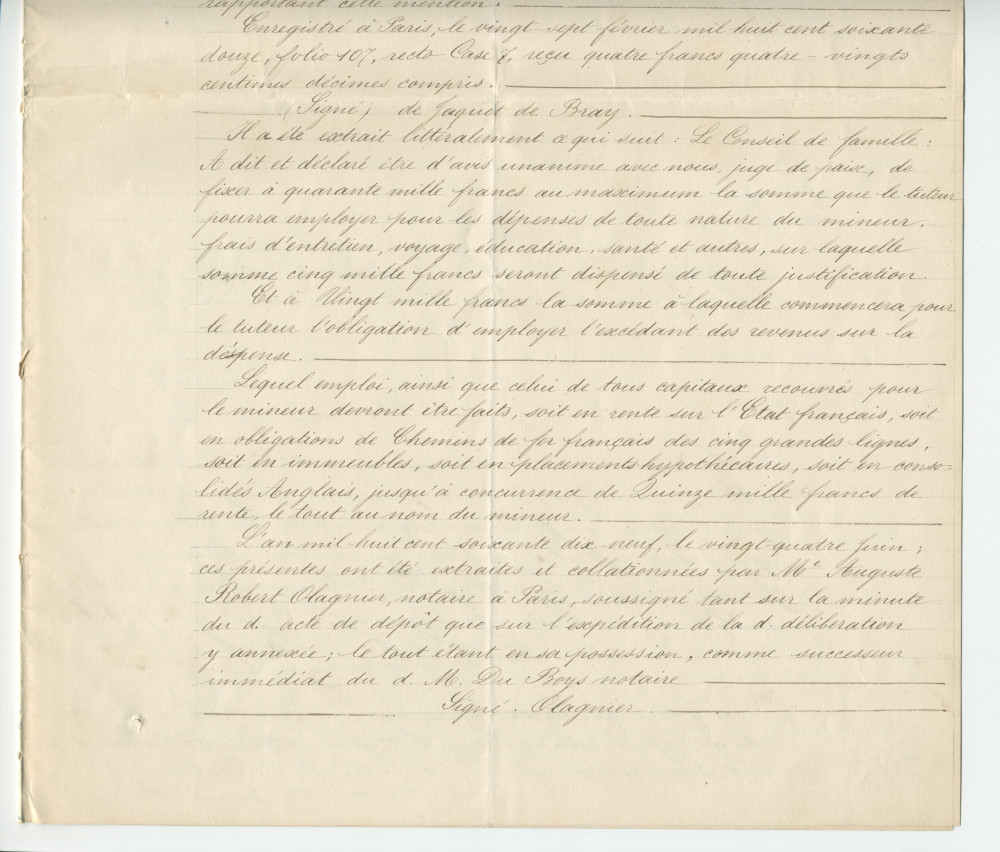 rapportant cette mention.
Enregistré à Paris, le vingt sept février mil huit cent soixante
douze, folio 107, recto Case 7, reçu quatre francs quatre-vingts
centimes décimes compris.
(Signé) de Jaquet de Bray.
Il a été extrait littéralement ce qui suit : Le Conseil de famille :
A dit et déclaré être d'avis unanime avec nous, juge de paix, de
fixer à quarante mille francs au maximum la somme que le tuteur
pourra employer pour les dépenses de toute nature du mineur,
frais d'entretien, voyage, éducation, santé et autres, sur laquelle
somme cinq mille francs seront dispensé de toute justification.
Et à Vingt mille francs la somme à laquelle commencera pour
le tuteur l'obligation d'employer l'excédant des revenus sur la
dépense.
Lequel emploi, ainsi que celui de tous capitaux recouvrés pour
le mineur devront être faits, soit en rente sur l'Etat français, soit
en obligations de Chemins de fer français des cinq grandes lignes,
soit en immeubles, soit en placements hypothécaires, soit en conso-
lidés Anglais, jusqu'à concurrence de Quinze mille francs de
rente, le tout au nom du mineur.
L'an mil huit cent soixante dix-neuf, le vingt-quatre Juin ;
ces présentes ont été extraites et collationnées par Me Auguste
Robert Olagnier, notaire à Paris, soussigné tant sur la minute
du d. acte de dépôt que sur l'expédition de la d. déliberation
y annexée ; le tout étant en sa possession, comme successeur
immédiat du d. M. Du Boys notaire
Signé. Olagnier.